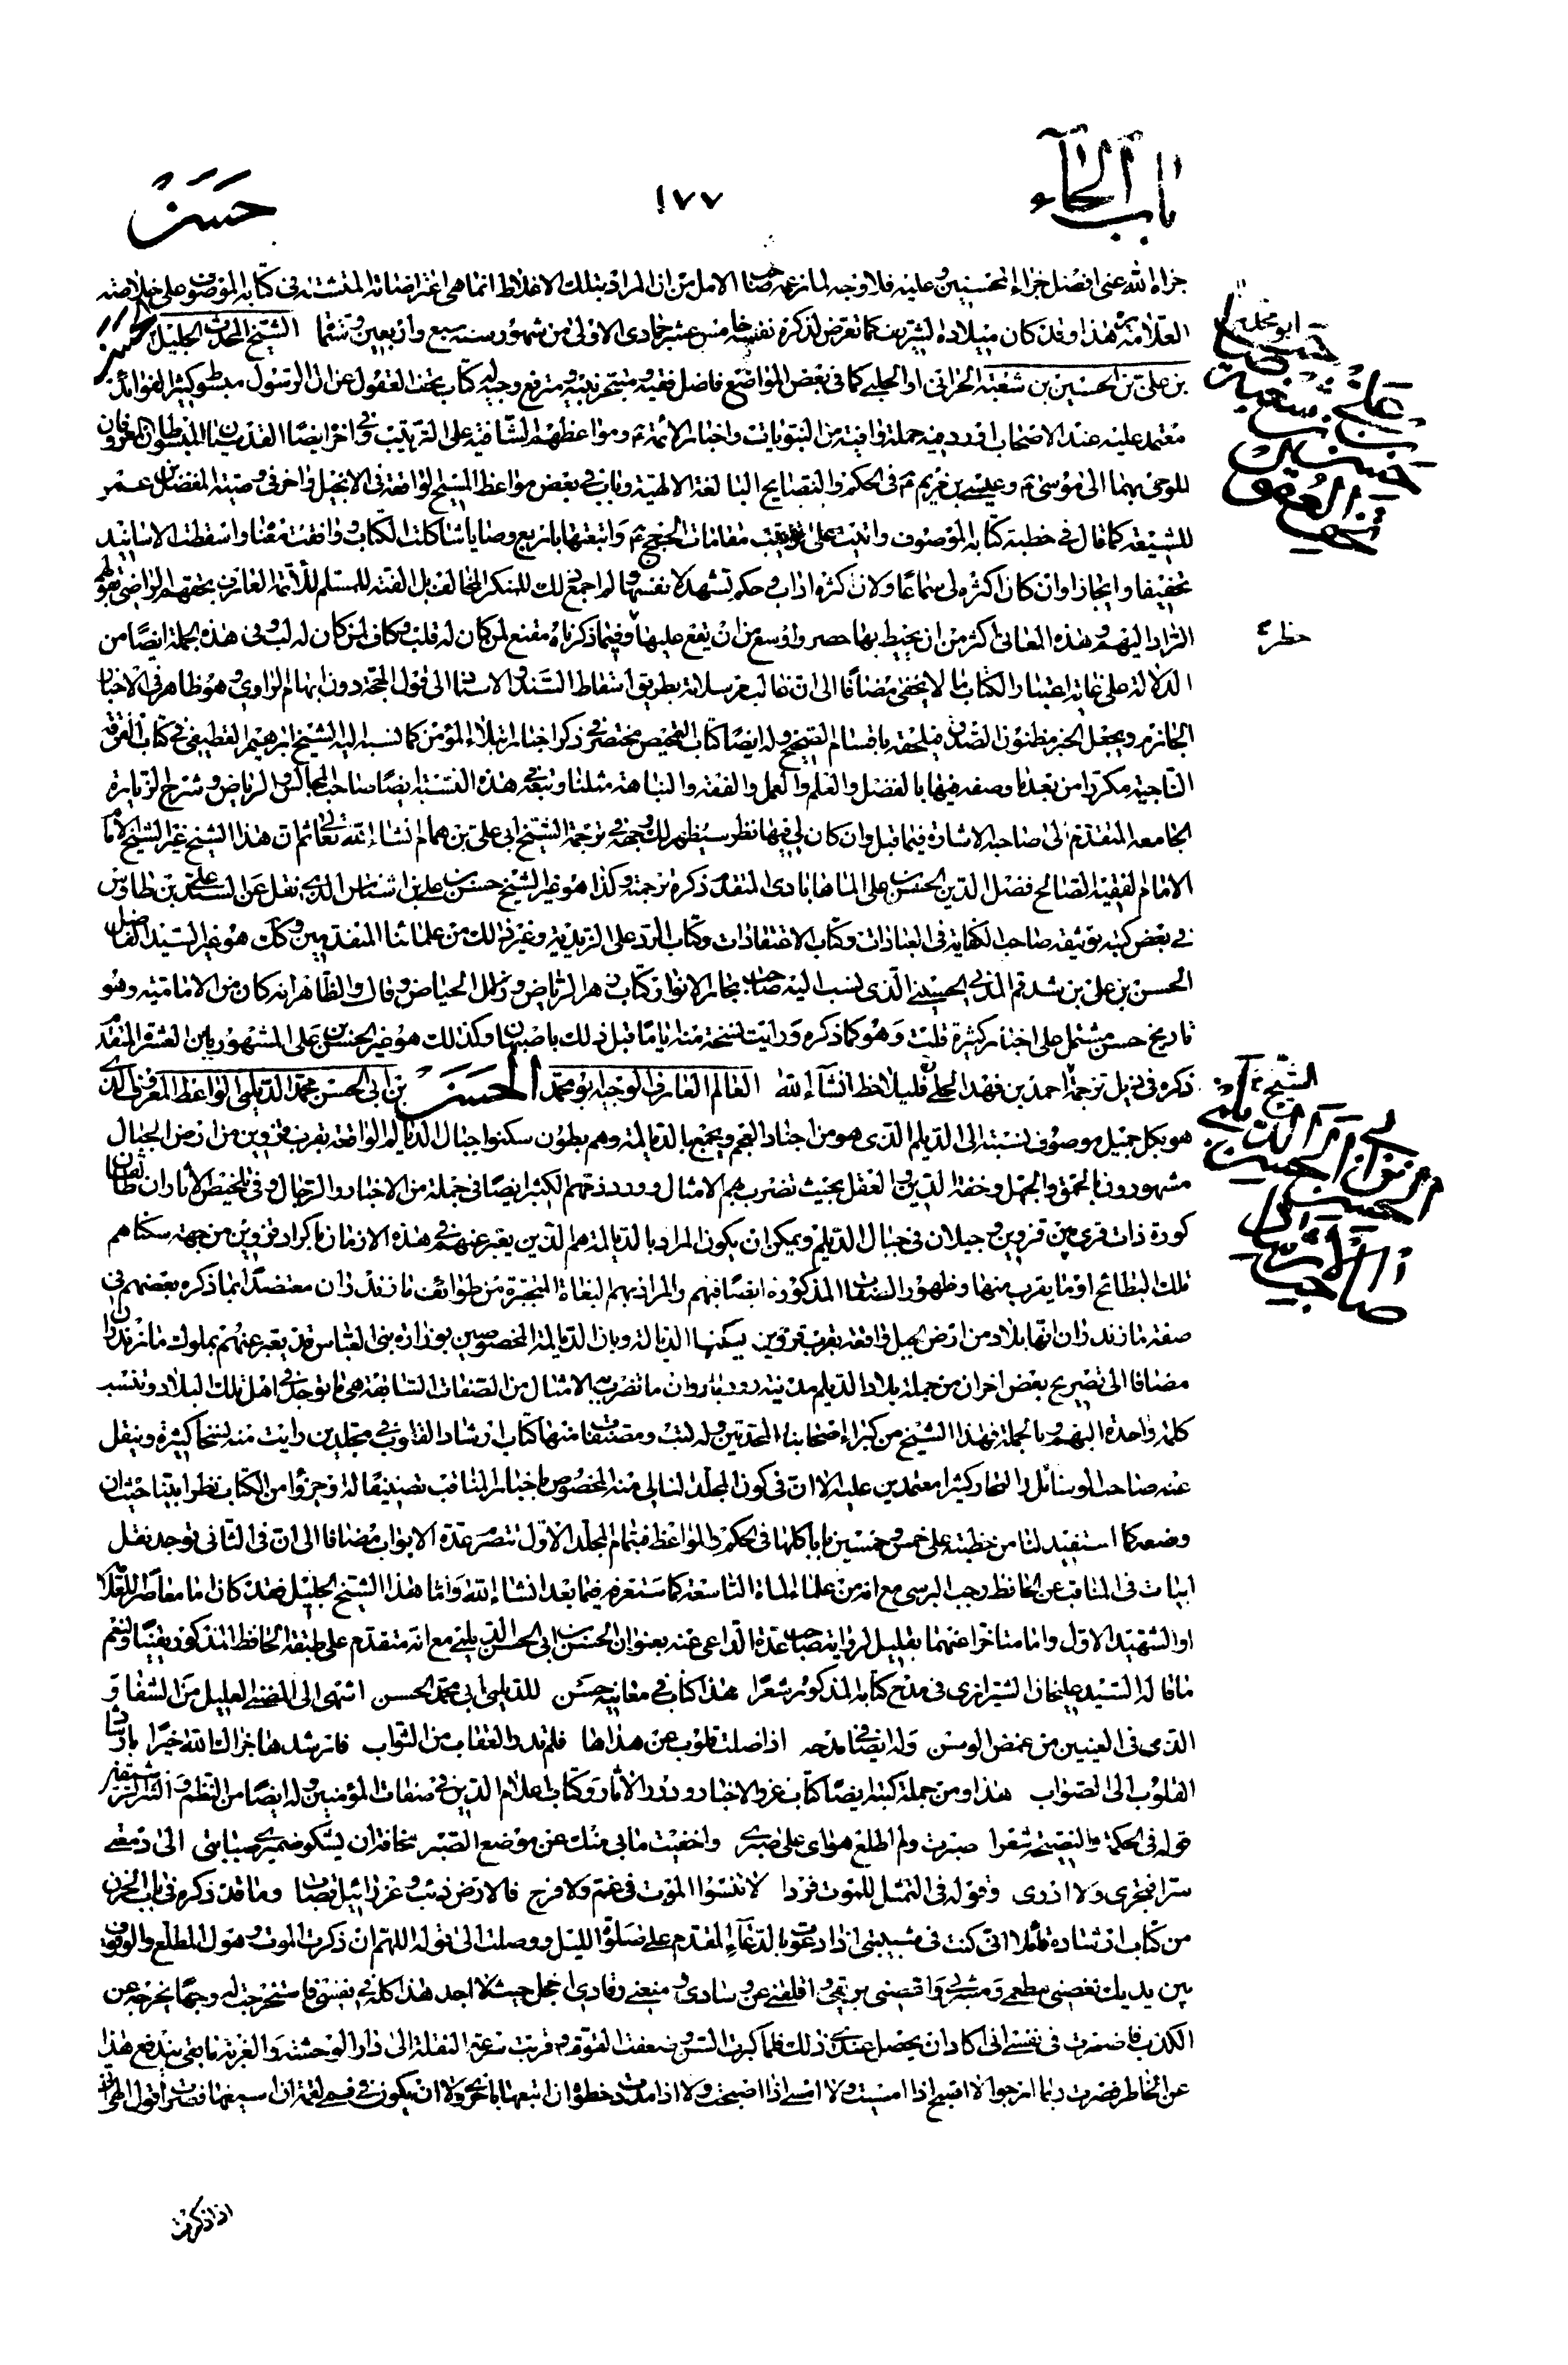 باب الحاء
١٧٧
حسن
جزاه الله عنى افضل جزاء المحسنين وعليه فلا وجه لما زعمه صاحب الامل من ان المراد بتلك الاغلاط انما هى اعتراضاته المنشتة فى كتابه الموصوف على خلاصة
العلامة هذا وقد كان ميلاده الشريف كما تعرض لذكره نفسه خامس عشر جمادى الاولى من شهور سنة سبع واربعين وستمأ الشيخ المحدث الجليل حسن
بن على بن الحسين بن شعبة الحرانى او الحلبى كما فى بعض المواضع فاضل فقيه ومتبحر نبيه ومترفع وجيه له كتاب تحف العقول عن ال الرسول مبسوط كثير الفوائد
معتمد عليه عند الاصحاب اورد فيه جملة وافية من النبويات واخبار الائمة ع ومواعظهم الشافية على الترتيب وفى اخره ايضا القدسيان المبسوطان المعروفان
الموحى بهما الى موسى ع وعيسى بن مريم ع فى الحكم والنصايح البالغة الالهية وباب فى بعض مواعظ المسيح الواقعة فى الانجيل واخر فى وصية المفضل بن عمر
للشيعة كما قال فى خطبة كتابه الموصوف واتيت على ترتيب مقامات الحجج ع واتبعتها باربع وصايا شاكلت الكتاب ووافقت معناه واسقطت الاسانيد
تخفيفا وايجازا وان كان اكثره لى سماعا ولان اكثره اداب وحكم تشهد لانفسها ولم اجمع ذلك للمنكر المخالف بل الفته للمسلم للائمة العارف بحقهم الراضى بقولهم
الراد اليهم وهذه المعانى اكثر من ان يحيط بها حصر واوسع من ان يقع عليها حظر وفيما ذكرناه مقنع لمن كان له قلب وكاف لمن كان له لب وفى هذه الجملة ايضا من
الدلالة على غاية اعتبار الكتاب ما لا يخفى مضافا الى ان غالب مرسلاته بطريق اسقاط السند والاستناد الى قول الحجة دون ابهام الراوى وهو ظاهر فى الاخبار
الجازم ويجعل الخبر مظنون الصدق فيلحقه باقسام الصحيح وله ايضا كتاب التمحيص مختصر فى ذكر اخبار ابتلاء المؤمن كما نسبه اليه الشيخ ابرهيم القطيفى فى كتاب الفرقة
الناجية مكررا من بعد ما وصفه فيها بالفضل والعلم والعمل والفقه والنباهة مثلنا وتبعه فى هذه النسبة ايضا صاحب المجالس والرياض وشرح الزيارة
الجامعة المتقدم الى صاحبه الاشارة فيما قبل وان كان لى فيها نظر سيظهر لك وجهه فى ترجمة الشيخ ابى على بن همام انشاء الله تعالى ثم ان هذا الشيخ غير الشيخ الامام
الامام الفقيه الصالح فضل الدين الحسن بن على الماهابادى المتقدم ذكره ترجمته وكذا هو غير الشيخ حسن بن على بن اشناس الذى نقل عن السيد على بن طاوس
فى بعض كتبه توثيقه صاحب الكفاية فى العبادات وكتاب الاعتقادات وكتاب الرد على الزيدية وغير ذلك من علمائنا المتقدمين وكك هو غير السيد الفاضل
الحسن بن على بن شدقم المدنى الحسينى الذى نسب اليه صاحب بحار الانوار كتاب زهر الرياض وزلال الحياض وقال والظاهر انه كان من الامامية وهو
تاريخ حسن مشتمل على اخبار كثيرة قلت وهو كما ذكره ورايت نسخة منه ايام ما قبل ذلك باصبهان وكذلك هو غير الحسن بن على المشهور بابن العشرة المتقدم
ذكره فى ذيل ترجمة احمد بن فهد الحلى قليلاحظ انشاء الله العالم العارف الوجيه ابو محمد الحسن بن ابى الحسن محمد الديلمى الواعظ المعروف الذى
هو بكل جميل موصوف نسبته الى الديلم الذى هو من اجناد العجم ويجمع بالديالمة وهم بطون سكنوا جبال الديالم الواقعة بقرب قزوين من ارض الجبال
مشهورون بالحمق والجهل وخفة الدين والعقل بحيث تضرب بهم الامثال وورد ذمهم الكثير ايضا فى جملة من الاخبار والرجال وفى تلخيص الاثار ان طالقان
كورة ذات قرى بين قزوين وجيلان فى جبال الديلم ويمكن ان يكون المراد بالديالمة هم الذين يعبر عنهم فى هذه الازمان باكراد قزوين من جهة سكناهم
تلك البطائح او ما يقرب منها وظهور الصفات المذكورة ايضا فيهم والمراد بهم البغاة المتجبرة من طوائف مازندران معتضدا بما ذكره بعضهم فى
صفة مازندران انها بلاد من ارض جبل واقعة بقرب قزوين يسكنها الديالمة وبان الديالمة المخصوصين بوزارة بنى العباس قد يعبر عنهم بملوك مازندران
مضافا الى تصريح بعض اخر ان من جملة بلاد الديلم مدينة رودبار وان ما تضرب الامثال من الصفات السابقة هى ما توجد فى اهل تلك البلاد وتنسب
كلمة واحدة اليهم وبالجملة فهذا الشيخ من كبراء اصحابنا المحدثين وله كتب ومصنفات منها كتاب ارشاد القلوب فى مجلدين رايت منه نسخا كثيرة وينقل
عنه صاحب الوسائل والبحار كثيرا معتمدين عليه الا ان فى كون المجلد الثانى منه المخصوص باخبار المناقب تصنيفا له وجزؤا من الكتاب نظرا بينا حيث ان
وضعه كما استفيد لنا من خطبته على خمس وخمسين بابا كلها فى الحكم والمواعظ فبتمام المجلد الاول تتصرم عدة الابواب مضافا الى ان فى الثانى توجد نقل
ابيات فى المناقب عن الحافظ رجب البرسى مع انه من علماء المأة التاسعة كما ستعرفه فيما بعد انشاء الله واما هذا الشيخ الجليل فقد كان اما معاصرا للعلامة
او الشهيد الاول واما متاخرا عنهما بقليل لرواية صاحب عدة الداعى عنه بعنوان الحسن بن ابى الحسن الديلمى مع انه متقدم على طبقة الحافظ المذكور يقينا ولنعم
ما قاله السيد عليخان الشيرازى فى مدح كتابه المذكور شعرا هذا كتاب فى معانيه حسن للديلمى ابى محمد الحسن اشهى الى المضنى العليل من الشفا و
الذى فى العينين من غمض الوسن وله ايضا فى مدحه اذا ضلت قلوب عن هداها فلم تدر العقاب من الثواب فارشدها جزاك الله خيرا بارشاد
القلوب الى الصواب هذا ومن جملة كتبه ايضا كتاب غرر الاخبار ودرر الاثار وكتاب اعلام الدين فى صفات المؤمنين وله ايضا من النظم والنثر
قوله فى الحكمة والنصيحة شعرا صبرت ولم اطلع هواى على صبرى واخفيت ما بى منك عن موضع الصبر مخافة ان يشكو ضميرى صبابتى الى دمعتى
سرا فتجرى ولا ادرى وقوله فى التمثل للموت فردا لا تنسوا الموت فى غم ولا فرح فالارض ذئب وعزرائيل قصاب وما قد ذكره فى باب الحزن
من كتاب ارشاده قائلا انى كنت فى شبيبتى اذا دعوت بالدعاء المقدم على صلوة الليل ووصلت الى قوله اللهم ان ذكرت الموت وهول المطلع والوقوف
بين يديك نغصنى مطعمى ومشربى واغصنى بريقى واقلقنى عن وسادى ومنعنى رقادى اخجل حيث لا اجد هذا كله فى نفسى فاستخرجت له وجها يخرجه عن
الكذب فاضمرت فى نفسى انى اكاد ان يحصل عندى ذلك فلما كبرت السن وضعفت القوة وقربت سرعة النقلة الى دار الوحشة والغربة ما بقى يندفع هذا
عن الخاطر فصرت ربما ارجو الا اصبح اذا امسيت ولا امسى اذا اصبحت ولا اذا مددت خطوة ان اتبعها باخرى ولا ان يكون فى فمى لقمة ان اسيغها فصرت اقول الهى
اذا ذكرت
ابو محمد حسن بن على بن شعبة
صاحب تحف العقول
حظر
الشيخ
الحسن بن ابى الحسن الديلمى
صاحب الارشاد